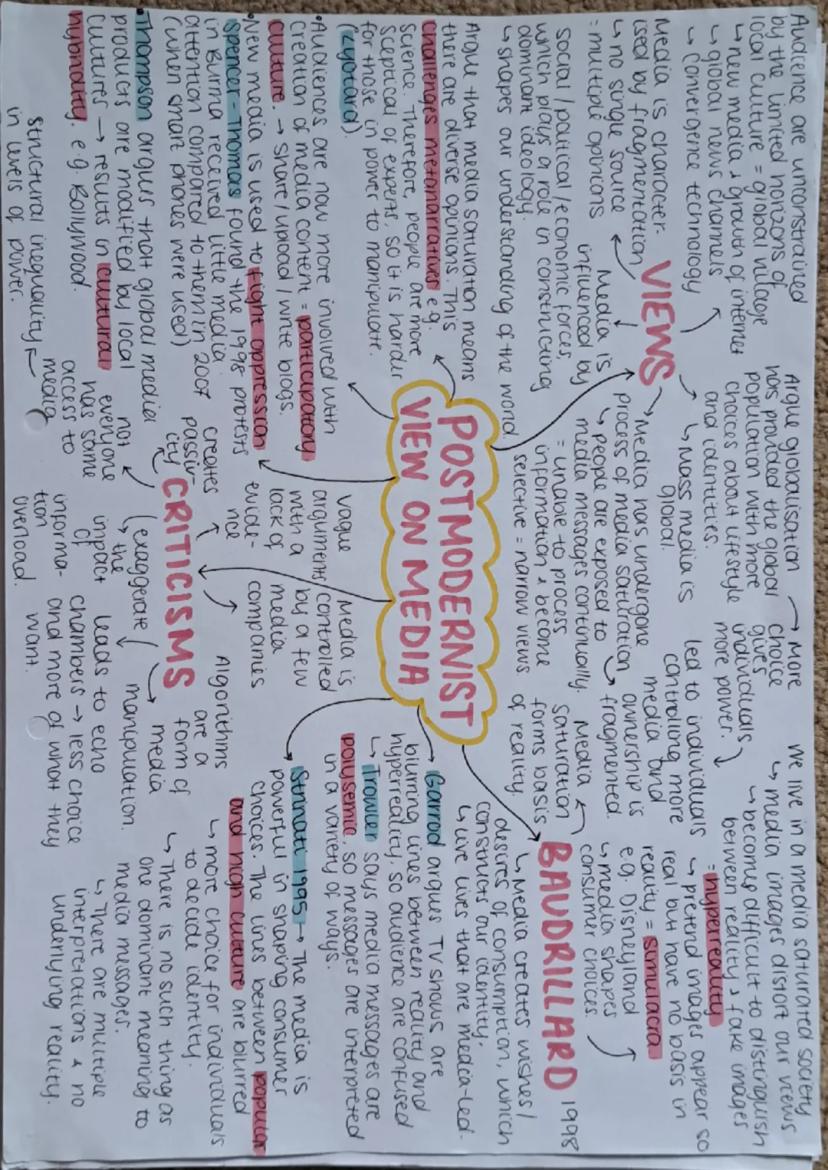 POSTMODERNIST
VIEW ON MEDIA
VIEWS
Audience are unconstrained
by the limited horizons of
local culture = global village
↳ new media & growth of internet
↳ global news channels
↳ convergence technology
Media is character-
ised by fragmentation
↳ no single source
= multiple opinions
Media is
influenced by
social/political/economic forces,
which plays a role in constructing
dominant ideology.
↳ shapes our understanding of the world.
Argue globalisation
has provided the global
population with more
choices about lifestyle
and identities.
↳ Mass media is
global.
→ More
choice
gives
individuals
more power.
Media has undergone
process of media saturation
↳ people are exposed to
media messages continually.
= unable to process
information & become
selective = narrow views
of reality.
led to individuals
controlling more
media and
ownership is
fragmented.
Argue that media saturation means
there are diverse opinions. This
challenges metanarratives e.g.
science. Therefore people are more
sceptical of experts, so it is harder
for those in power to manipulate.
(Lyotard).
• Audiences are now more involved with
creation of media content = participatory
culture. → share/upload/write blogs.
• New media is used to fight oppression
Spencer-Thomas found the 1998 protests
in Burma received little media
attention compared to them in 2007
(when smart phones were used)
• Thompson argues that global media
products are modified by local
cultures → results in cultural
hybridity. e.g. Bollywood.
BAUDRILLARD 1998
We live in a media saturated society
↳ media images distort our views
↳ becomes difficult to distinguish
between reality & fake images
= hyperreality
↳ pretend images appear so
real but have no basis in
reality = simulacra
e.g. Disneyland
↳ media shapes
consumer choices
Media
saturation
forms basis
↳ Media creates wishes/
desires of consumption, which
constructs our identity.
↳ live lives that are media-led.
Garrod argues TV shows are
blurring lines between reality and
hyperreality, so audience are confused
↳ Trowler says media messages are
polysemic, so messages are interpreted
in a variety of ways.
Strinati 1995 → The media is
powerful in shaping consumer
choices. The lines between popular
and high culture are blurred
↳ more choice for individuals
to decide identity.
↳ There is no such thing as
one dominant meaning to
media messages.
↳ There are multiple
interpretations & no
underlying reality.
CRITICISMS
vague
arguments
with a
lack of
evide-
nce
Media is
controlled
by a few
media
companies
creates
passiv-
ity
not
everyone
has some
access to
media
structural inequality
in levels of power.
(exaggerate
↳ the
impact
informa-
tion
overload.
Algorithms
are a
form of
media
manipulation.
leads to echo
chambers → less choice
and more of what they
want.